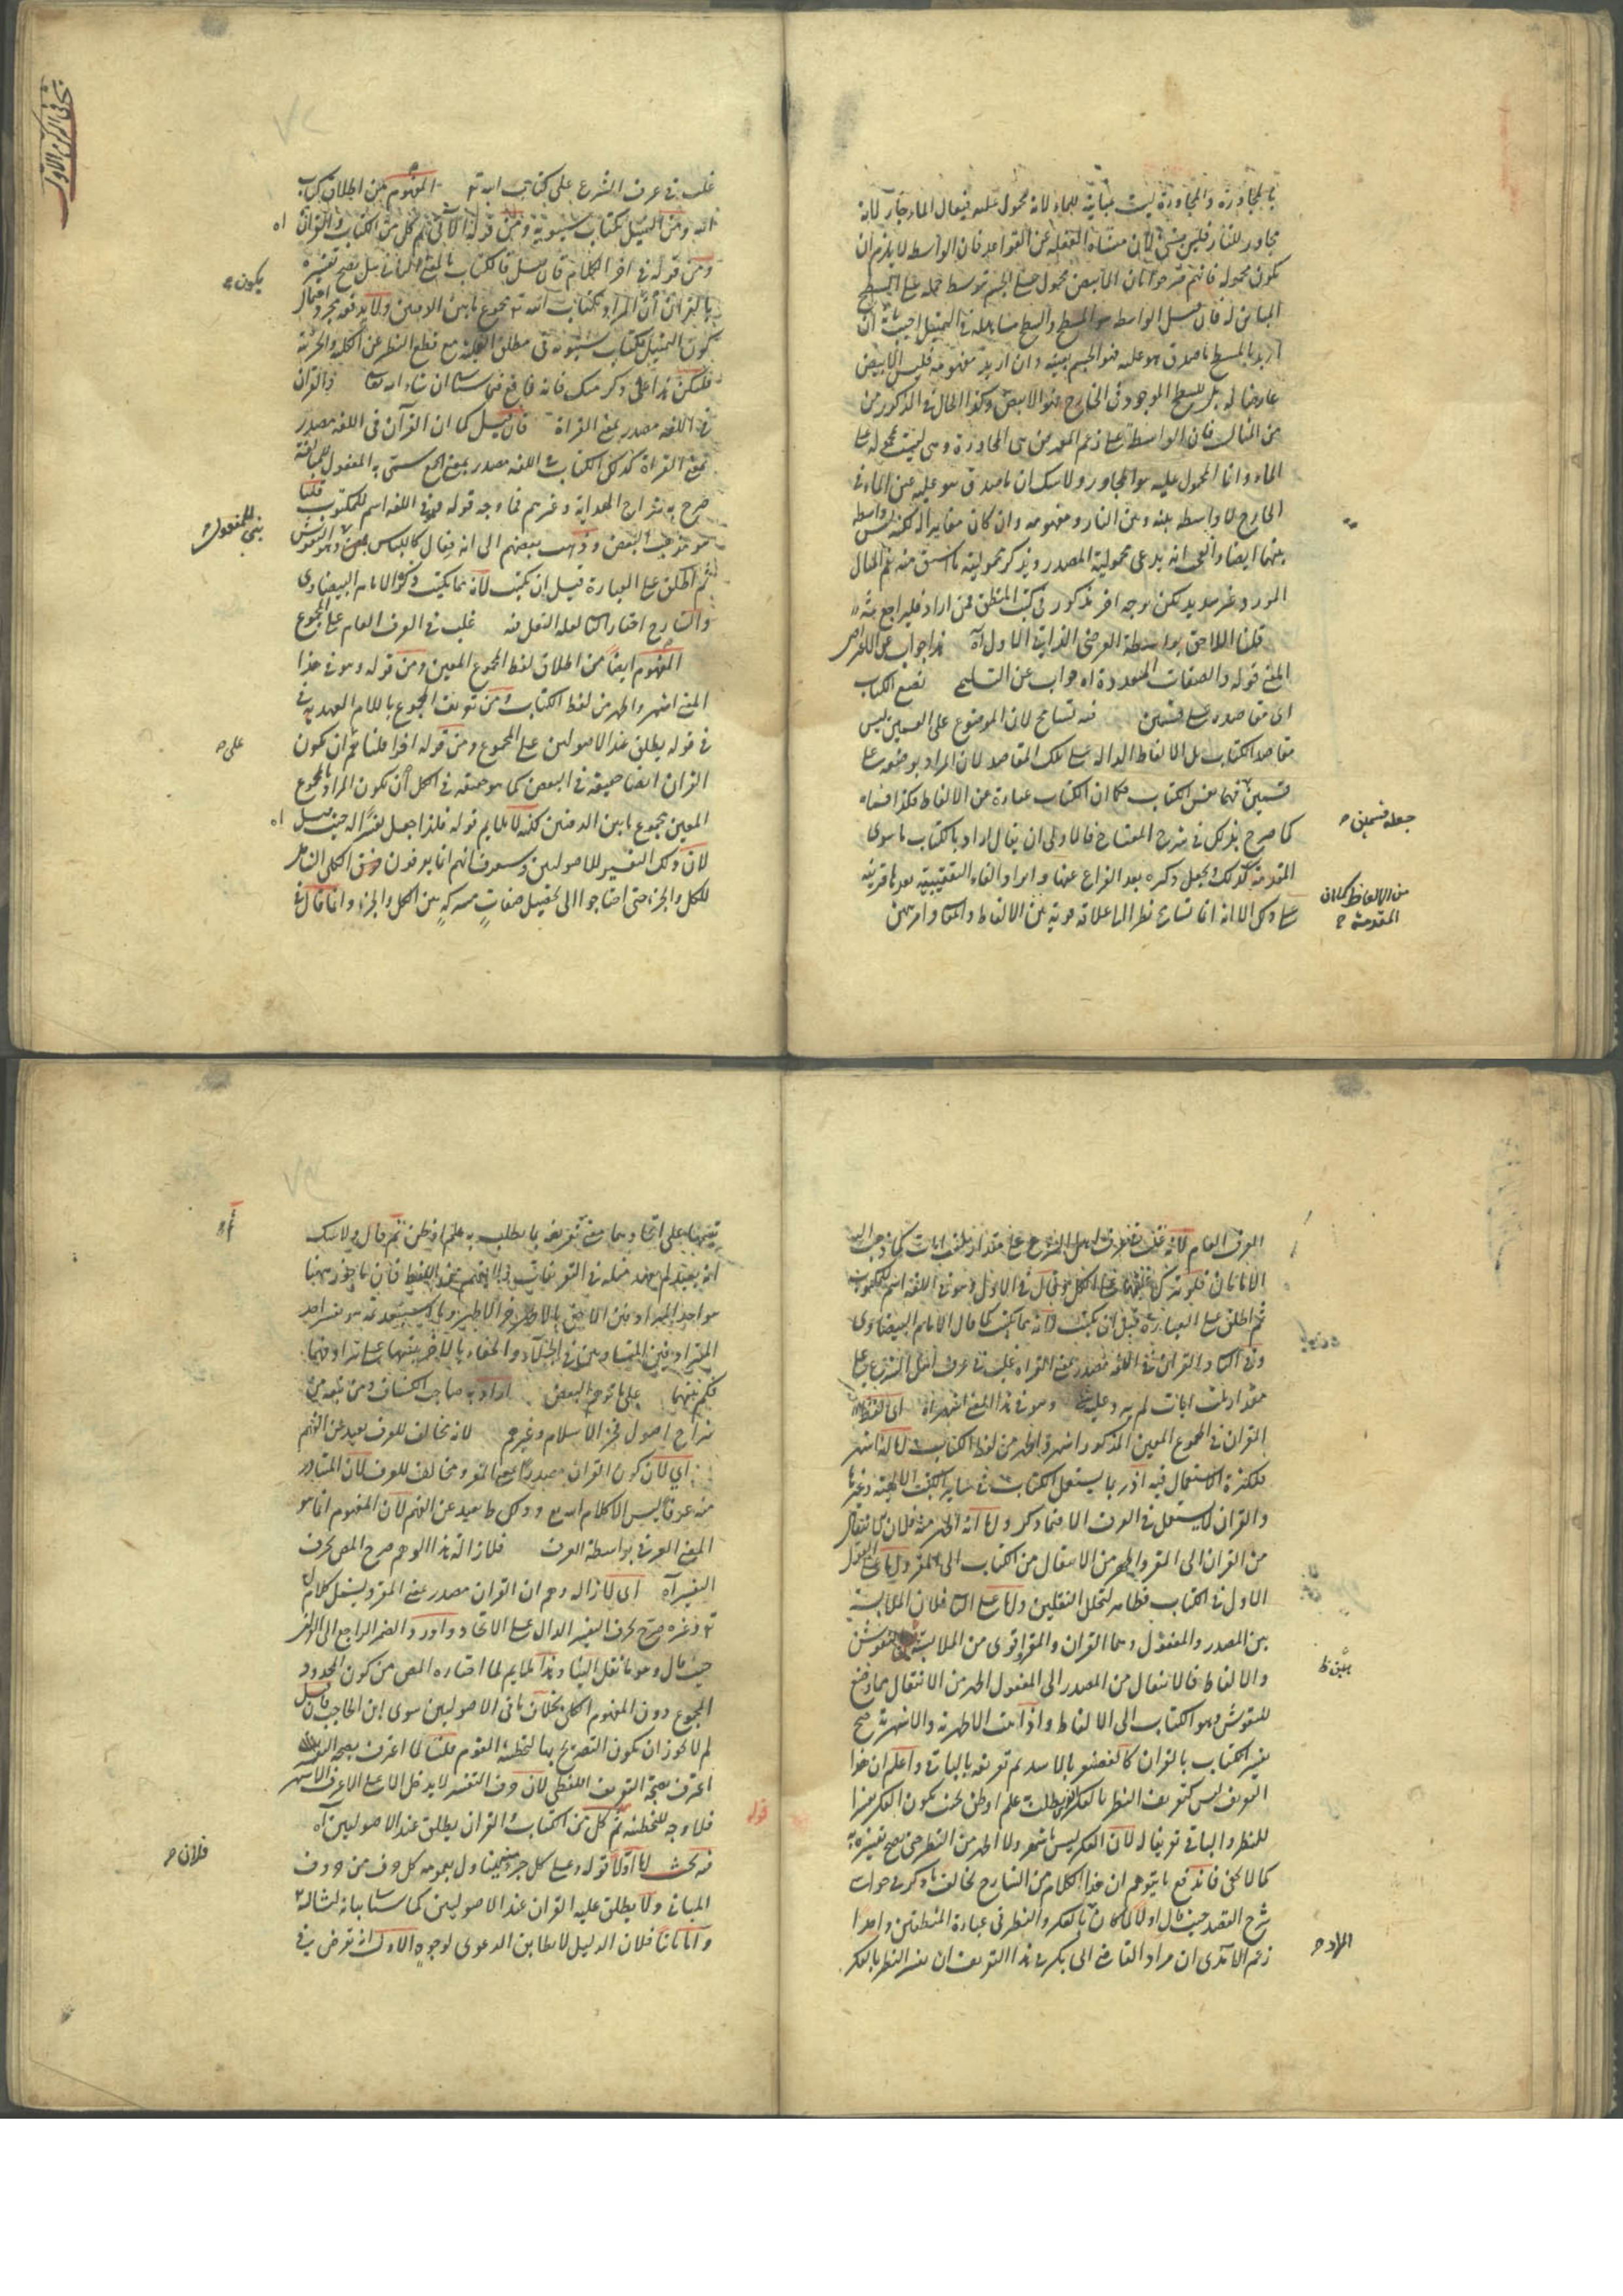 بالمجاورة والمجاورة ليست مباينة للماء لانه محمول عليه فيقال الماء جار لانه
مجاور للنار فليس بشئ لان منشاه الغفلة عن القواعد فان الواسط لا يلزم ان
يكون محموله فانهم صرحوا بان الابيض محمول على الجسم بتوسط حمله على السطح
المباين له فان قيل الواسطه هو المسطح والسطح مساهلة في التمثيل اجيب بان
اريد بالمسطح ما صدق هو عليه فهو الجسم بعينه وان اريد مفهومه فليس الابيض
عارضا له بل للسطح الموجود في الخارج فهو الابيض وكذا الحال في المذكور من
من المثال فان الواسطة على زعم المورد هي المجاورة وهي ليست محمولة على
الماء وانما المحمول عليه هو المجاور ولا شك ان ما صدق هو عليه عين الماء في
الخارج لا واسطة بينه وبين النار ومفهومه وان كان مغايرا له لكنه ليس واسطة
بينهما ايضا والعجب انه يدعى محمولية المصدر ويذكر محمولية ما اشتق منه نعم المثال
المورد غير سديد لكن بوجه اخر مذكور في كتب المنطق فمن اراد فليراجع ثمه
قلنا اللاحق بواسطة العرضي الذاتي الاول آه هذا جواب عن الاعتراض
المعنى قوله والصفات المتعددة اه جواب عن التسليم نضع الكتاب
اى مقاصده على قسمين فيه تسامح لان الموضوع على القسمين ليس
مقاصد الكتاب بل الالفاظ الدالة على تلك المقاصد لان المراد بوضعه على
قسمين فهما نفس الكتاب فكما ان الكتاب عبارة عن الالفاظ فكذا قسماه
كما صرح بذلك في شرح المفتاح فالاولى ان يقال اراد بالكتاب ما سوى
المقدمة كذلك ويجعل ذكره بعد الفراغ عنها وايراد الفاء التعقيبية بعدها قرينة
على ذلك الا انه انما تسامح نظرا الى علاقة قوية بين الالفاظ والمعاني
جعله قسمين
من الالفاظ كان
المقدمة
غلب في عرف الشرع على كتاب الله تع المفهوم من اطلاق كتاب
الله ومن التمثيل بكتاب سيبويه ومن قوله الآتي ثم كل من الكتاب والقران اه
ومن قوله في اخر الكلام فان قيل فالكتاب بالمعنى الثاني هل يصح تفسيره
بالقران ان المراد بكتاب الله تع مجموع ما بين الدفتين ولا يدفعه مجرد احتمال
كون التمثيل بكتاب سيبويه في مطلق الغلبة مع قطع النظر عن الكلية والجزئية
فليكن هذا على ذكر منك فانه نافع فيما سياتي ان شاء الله تعالى والقران
في اللغة مصدر بمعنى القراة فان قيل كما ان القرآن في اللغة مصدر
بمعنى القراة كذلك الكتاب في اللغة مصدر بمعنى الجمع سمى به المفعول للمبالغة
صرح به شراح الهداية وغيرهم فما وجه قوله فهو في اللغة اسم للمكتوب قلنا
هو مذهب البعض وذهب بعضهم الى انه فعال كاللباس بنى للمفعول
ثم اطلق على العبارة قبل ان يكتب لانه مما يكتب ذكره الامام البيضاوى
والشارح اختار الثاني لعلة النقل فيه غلب في العرف العام على المجموع
المفهوم ايضا من اطلاق لفظ المجموع المعين ومن قوله وهو في هذا
المعنى اشهر واظهر من لفظ الكتاب ومن تعريف المجموع باللام العهدية
في قوله يطلق عند الاصوليين على المجموع ومن قوله اخرا قلنا نعم ان يكون
القران ايضا حقيقة في البعض كما هو حقيقة في الكل أن يكون المراد بالمجموع
المعين مجموع ما بين الدفتين لكنه لا يلايم قوله فلهذا جعل تفسيرا له حيث قيل اه
لان ذلك التفسير للاصوليين وستعرف انهم انما يعرفون المفهوم الكلي الشامل
للكل والجزء حتى احتاجوا الى تحصيل صفات مشتركة بين الكل والجزء وانما قال في
يكون
بنى للمفعول
على
العرف العام لانه غلب في عرف اهل الشرع على مقدار ثلث ايات كما ذهب اليه
الامامان
ثم اطلق على العبارة قبل ان يكتب لانه مما يكتب كما قال الامام البيضاوى
وفي الثاني والقران في اللغة مصدر بمعنى القراة غلب في عرف اهل الشرع على
مقدار ثلث ايات لم يرد عليه وهو في هذا المعنى اشهر اه اى لفظ
القران في المجموع المعين المذكور اشهر واظهر من لفظ الكتاب اما انه اشهر
فلكثرة الاستعمال فيه اذ ربما يستعمل الكتاب في سائر الكتب الالهية وغيرها
والقران لا يستعمل في العرف الا فيما ذكر واما انه اظهر منه فلان الانتقال
من القران الى المقرو اظهر من الانتقال من الكتاب الى المقرو اما على القول
الاول في الكتاب فظاهر لتخلل النقلين واما على الثاني فلان الملابسة
بين المصدر والمفعول وهما القران والمقرو اقوى من الملابسة بين النقوش
والالفاظ فالانتقال من المصدر الى المفعول اظهر من الانتقال مما وضع
للنقوش وهو الكتاب الى الالفاظ واذا ثبت الاظهرية والاشهرية صح
تفسير الكتاب بالقران كالغضنفر بالاسد ثم تعريفه بالباقي واعلم ان هذا
التعريف ليس كتعريف النظر بالفكر الذي يطلب به علم او ظن بحيث يكون الفكر تفسيرا
للنظر والباقي تعريفا له لان الفكر ليس باشهر ولا اظهر من النظر حتى يصح تفسيره به
كما لا يخفى فاندفع ما يتوهم ان هذا الكلام من الشارح مخالف لما ذكره في حواشى
شرح العضد حيث قال اولا لما كان الفكر والنظر في عبارة المنطقين واحدا
زعم الآمدى ان مراد القاضي ابى بكر في هذا التعريف ان يفسر النظر بالفكر
بين ظ
المراد
تنبيها على اتحادهما في تعريفه بما يطلب به علم او ظن ثم قال ولا شك
انه بعيد لم يعهد مثله في التعريفات
هو احد المترادفين
المترادفين المتساويين في الجلاء والخفاء بالاخر تنبيها على ترادفهما
فكم بينهما على ما توهم البعض اراد به صاحب الكشاف ومن تبعه من
شراح اصول فخر الاسلام وغيرهم لانه مخالف للعرف بعيد عن الفهم
اي لان كون القران مصدرا بمعنى المقرو مخالف للعرف لان المتبادر
منه عرفا ليس الا كلام الله تع وذلك ظ بعيد عن الفهم لان المفهوم انما هو
المعنى العرفي بواسطة العرف فلازالة هذا الوهم صرح المص بحرف
التفسير آه اى لازالة وهم ان القران مصدر بمعنى المقرو يشمل كلام الله
تع وغيره صرح بحرف التفسير الدال على الاتحاد واورد الضمير الراجع الى القران
حيث قال وهو ما نقل الينا وهذا الملايم لما اختاره المص من كون المحدود
المجموع دون المفهوم الكلي بخلاف باقي الاصوليين سوى ابن الحاجب فان قيل
لم لا يجوز ان يكون التصريح بها لتخطئة القوم قلنا لما اعترف بصحة التفسير
اعترف بصحة التعريف اللفظي لان حرف التفسير لا يدخل الا على الاعرف الاشهر
فلا وجه للتخطئة ثم كل من الكتاب والقران يطلق عند الاصوليين اه
فيه بحث اما اولا
المباني ولا يطلق عليه القران عند الاصوليين كما سياتي بيانه
واما ثانيا فلان الدليل لا يطابق الدعوى لوجوه الاول انه تعرض في
فلان
قوله